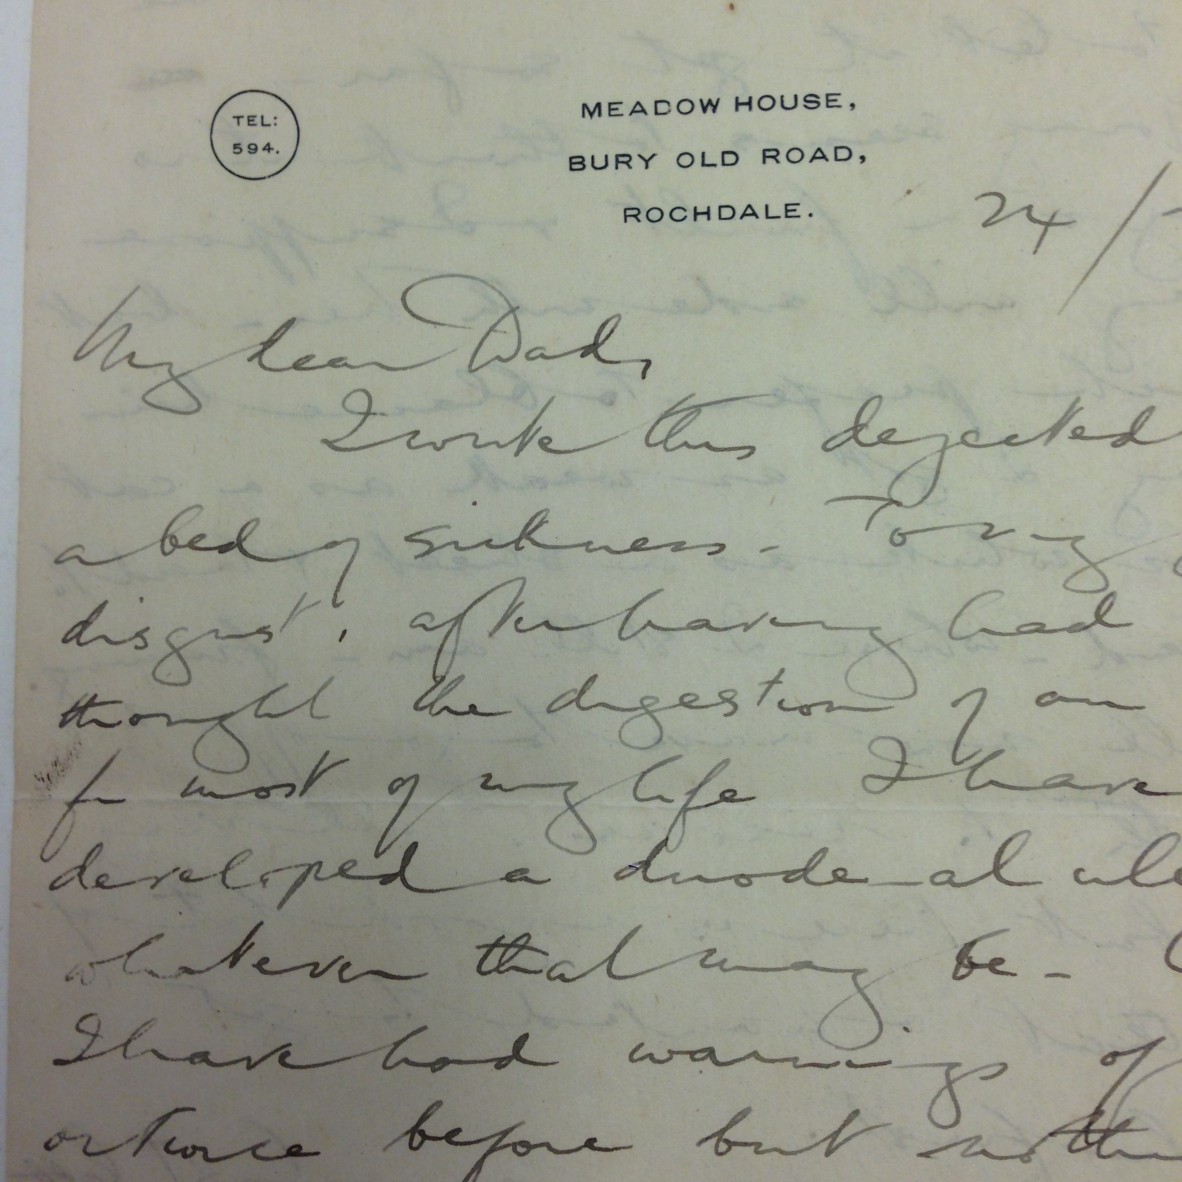 TEL:
594.
MEADOW HOUSE,
BURY OLD ROAD,
ROCHDALE.
24/
My dear Dad,
I write this dejected
a bed of sickness - To my
disgust, after having had
thought the digestion of an
for most of my life I have
developed a duodenal ulc
whatever that may be -
I have had warnings of
or twice before but nothin